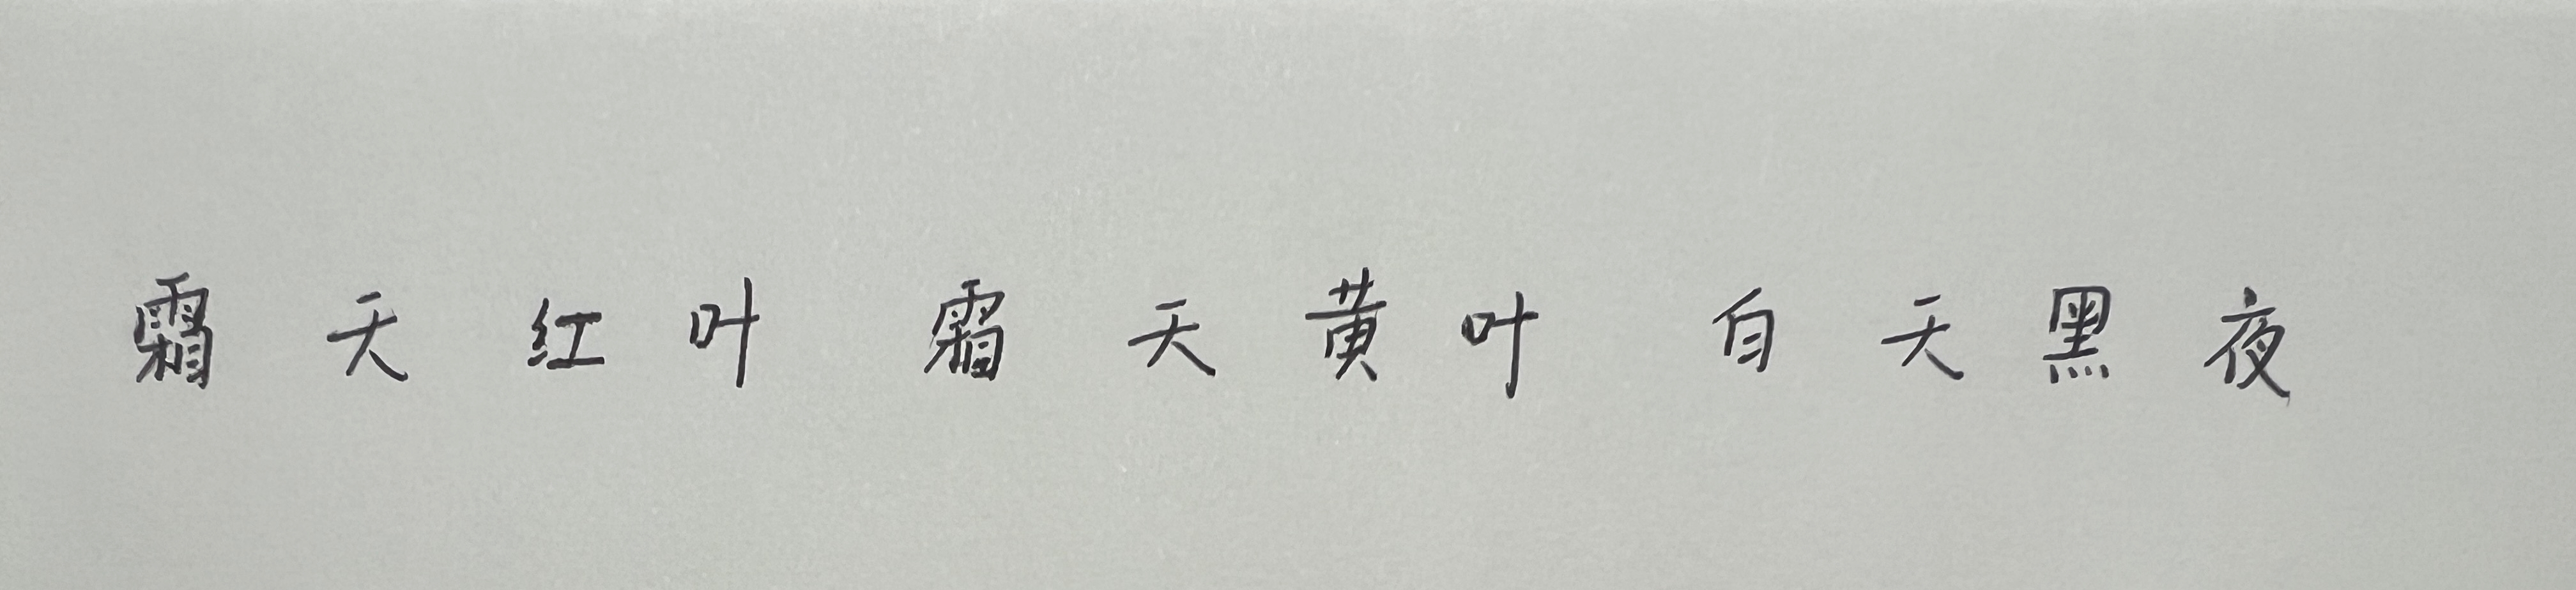 霜天红叶 霜天黄叶 白天黑夜